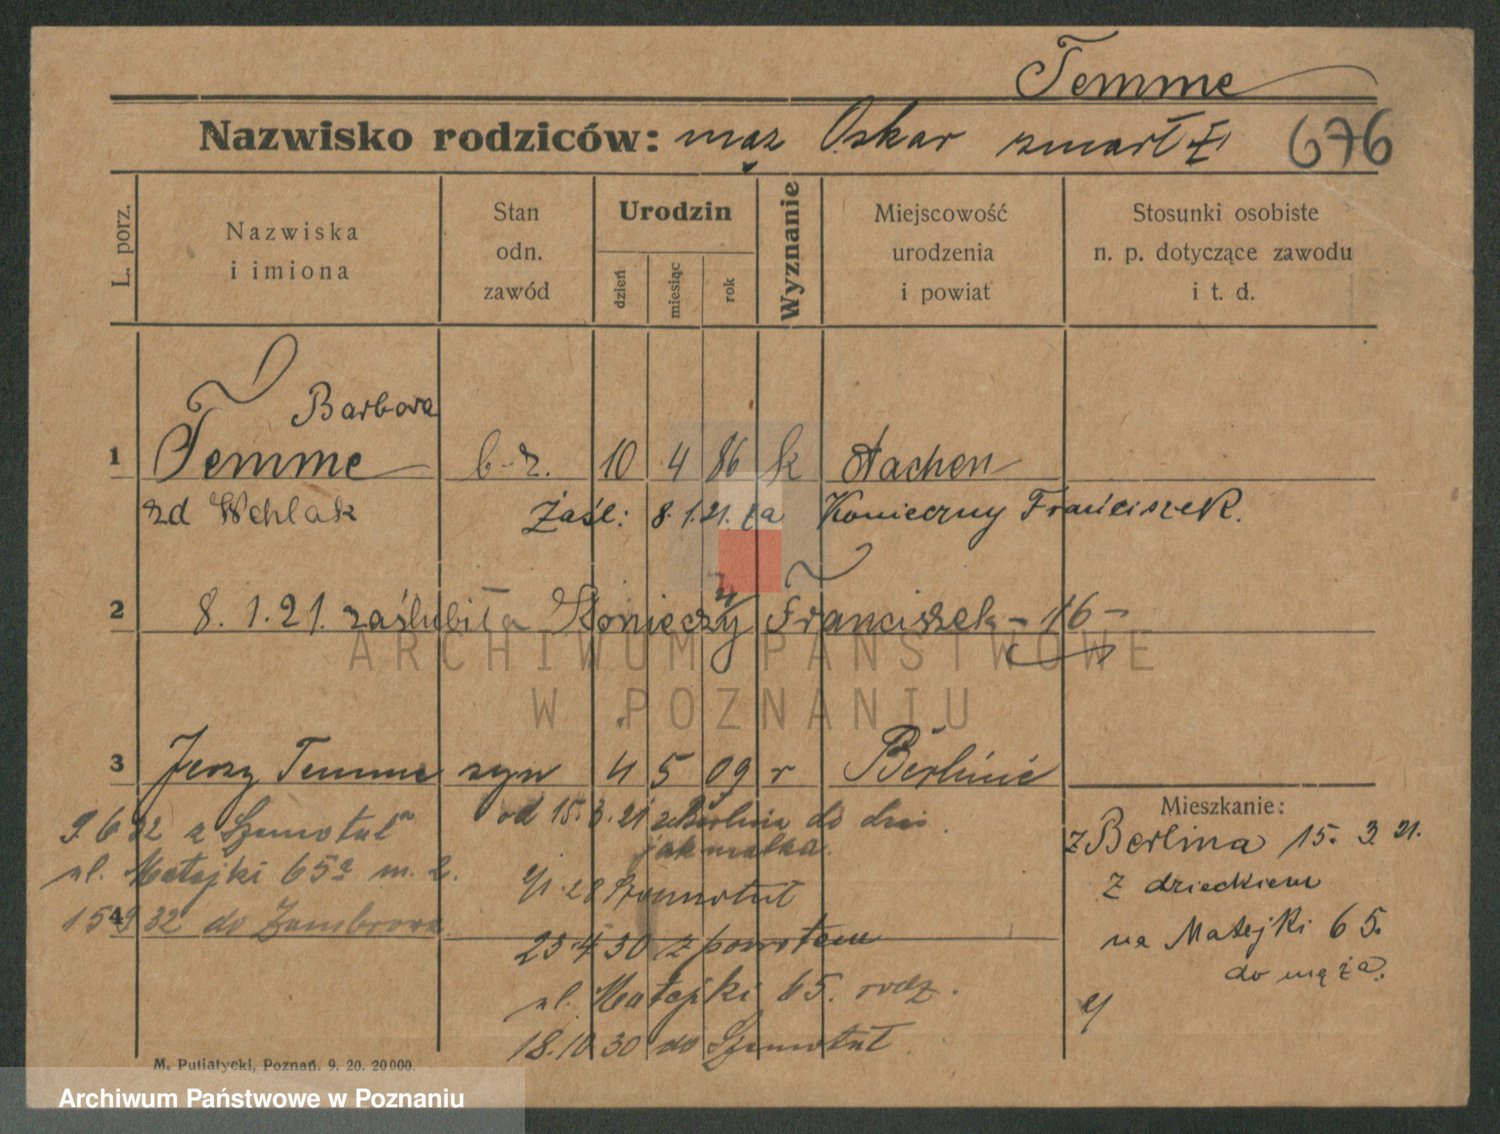 Temme
Nazwisko rodziców: mąż Oskar zmarł 676
L. porz.
Nazwiska
i imiona
Stan
odn.
zawód
Urodzin
dzień
miesiąc
rok
Wyznanie
Miejscowość
urodzenia
i powiat
Stosunki osobiste
n. p. dotyczące zawodu
i t. d.
Barbara
1 Temme b-z. 10 4 86 k Aachen
zd Wehlak Zaśl: 8. 1. 21. za Konieczny Franciszek.
2 8. 1. 21. zaślubiła Konieczy Franciszek - 16 -
3 Jerzy Temme syn 4 5 09 r Berlinie
Mieszkanie:
9 6 32 z Szamotuł
od 15. 3. 21 z Berlina do
jak matka.
z Berlina 15. 3 21.
ul. Matejki 65a m. 2.
28 Szamotuł
z dzieckiem
4 15 9 32 do Zambrowa
na Matejki 65.
23 4 30 z powrotem
do męża.
ul. Matejki 65. rodz.
18. 10 30 do Szamotuł.
M. Putiatycki, Poznań. 9. 20. 20000.
ARCHIWUM PAŃSTWOWE
W POZNANIU
Archiwum Państwowe w Poznaniu